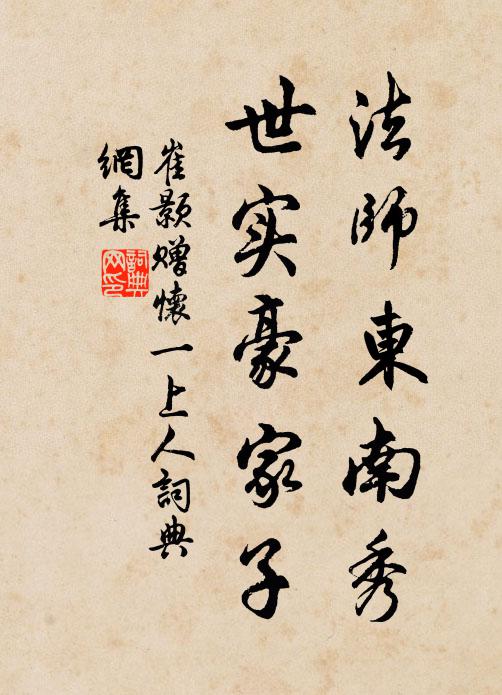 法師東南秀
世实豪家子
崔顥赠懷一上人詞典
網集
詞典
网印